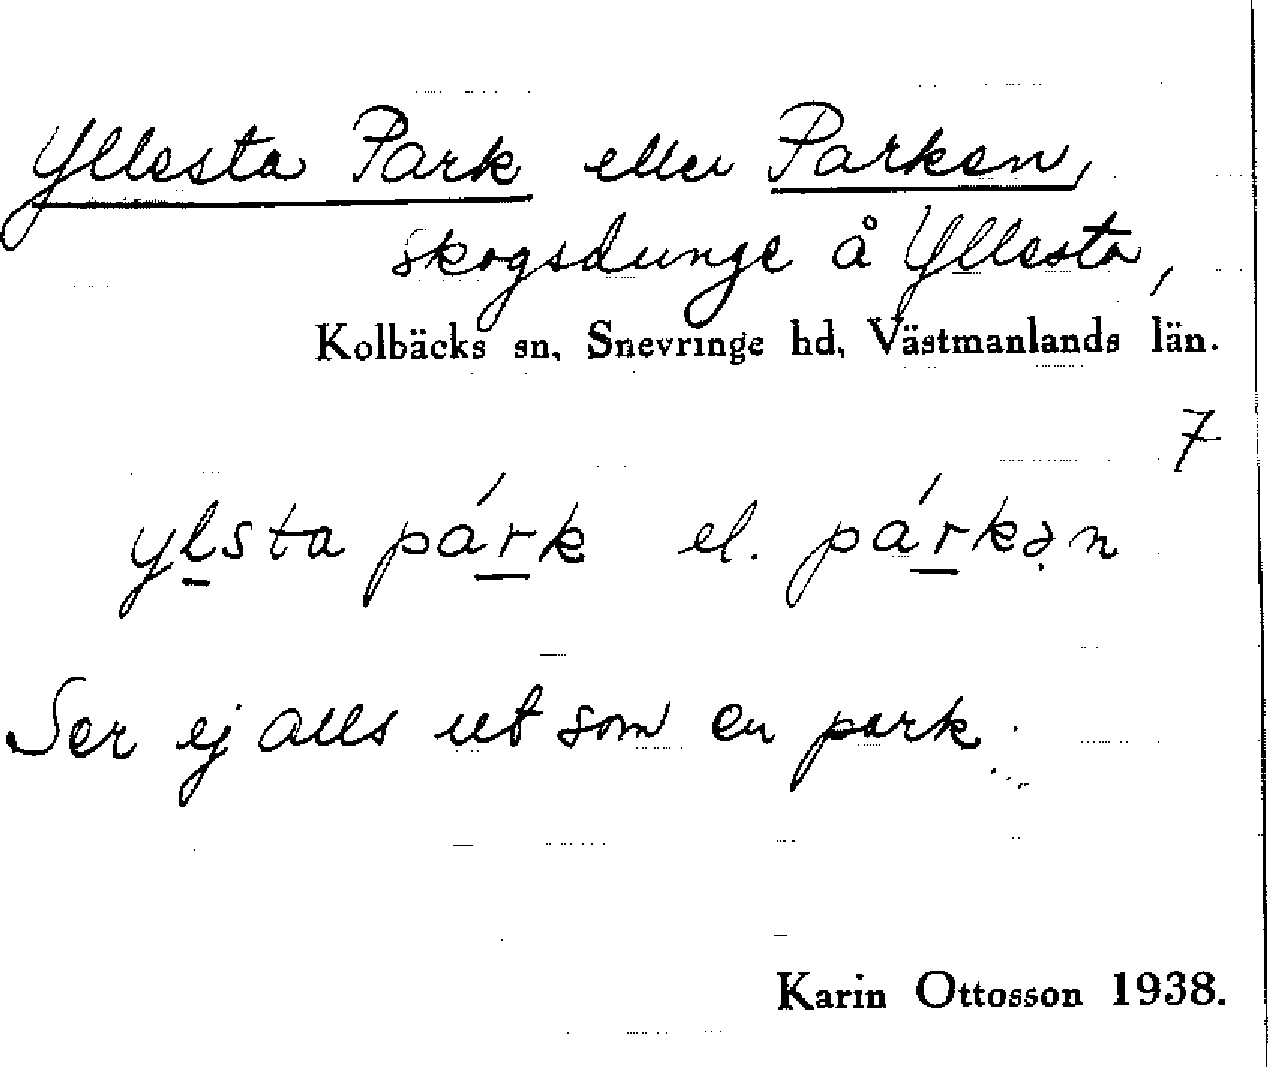 Yllesta Park eller Parken,
skogsdunge å Yllesta,
Kolbäcks sn, Snevringe hd, Västmanlands län.
7
yl̲sta pár̲k el. pár̲kə̣n
Ser ej alls ut som en park.
Karin Ottosson 1938.